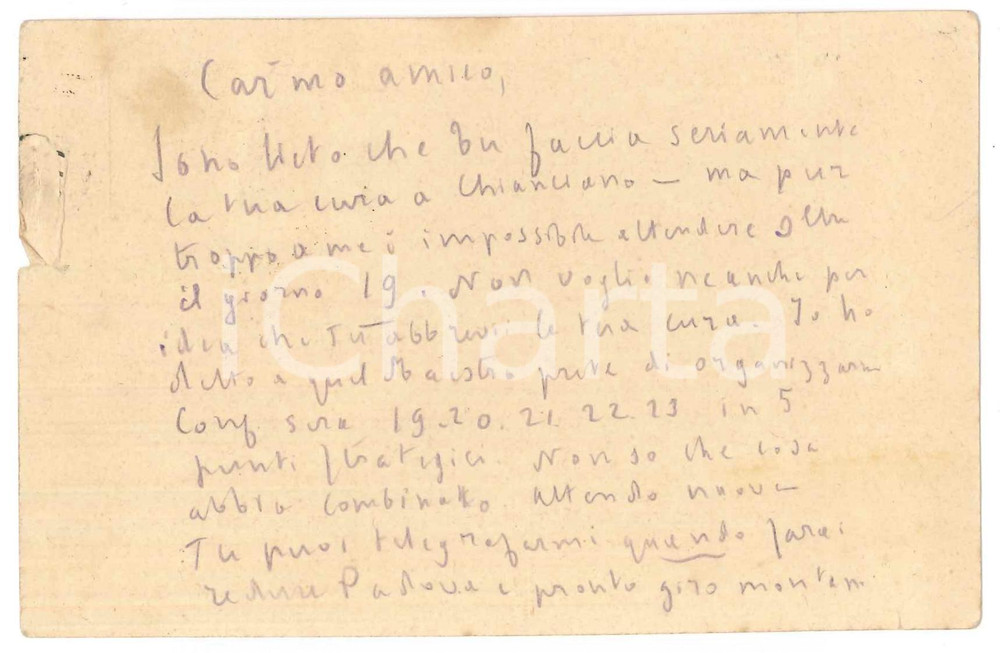 Car.mo amico,
Sono lieto che tu faccia seriamente
la tua cura a Chianciano – ma pur
troppo a me è impossibile attendere oltre
il giorno 19. Non voglio neanche per
idea che Tu abbrevi la tua cura. Io ho
detto a quel Maestro prete di organizzare
Conf. sera 19.20.21.22.23 in 5
punti strategici. Non so che cosa
abbia combinato. Attendo nuove
Tu puoi telegrafarmi quando sarai
reduce Padova e pronto giro montan
iCharta